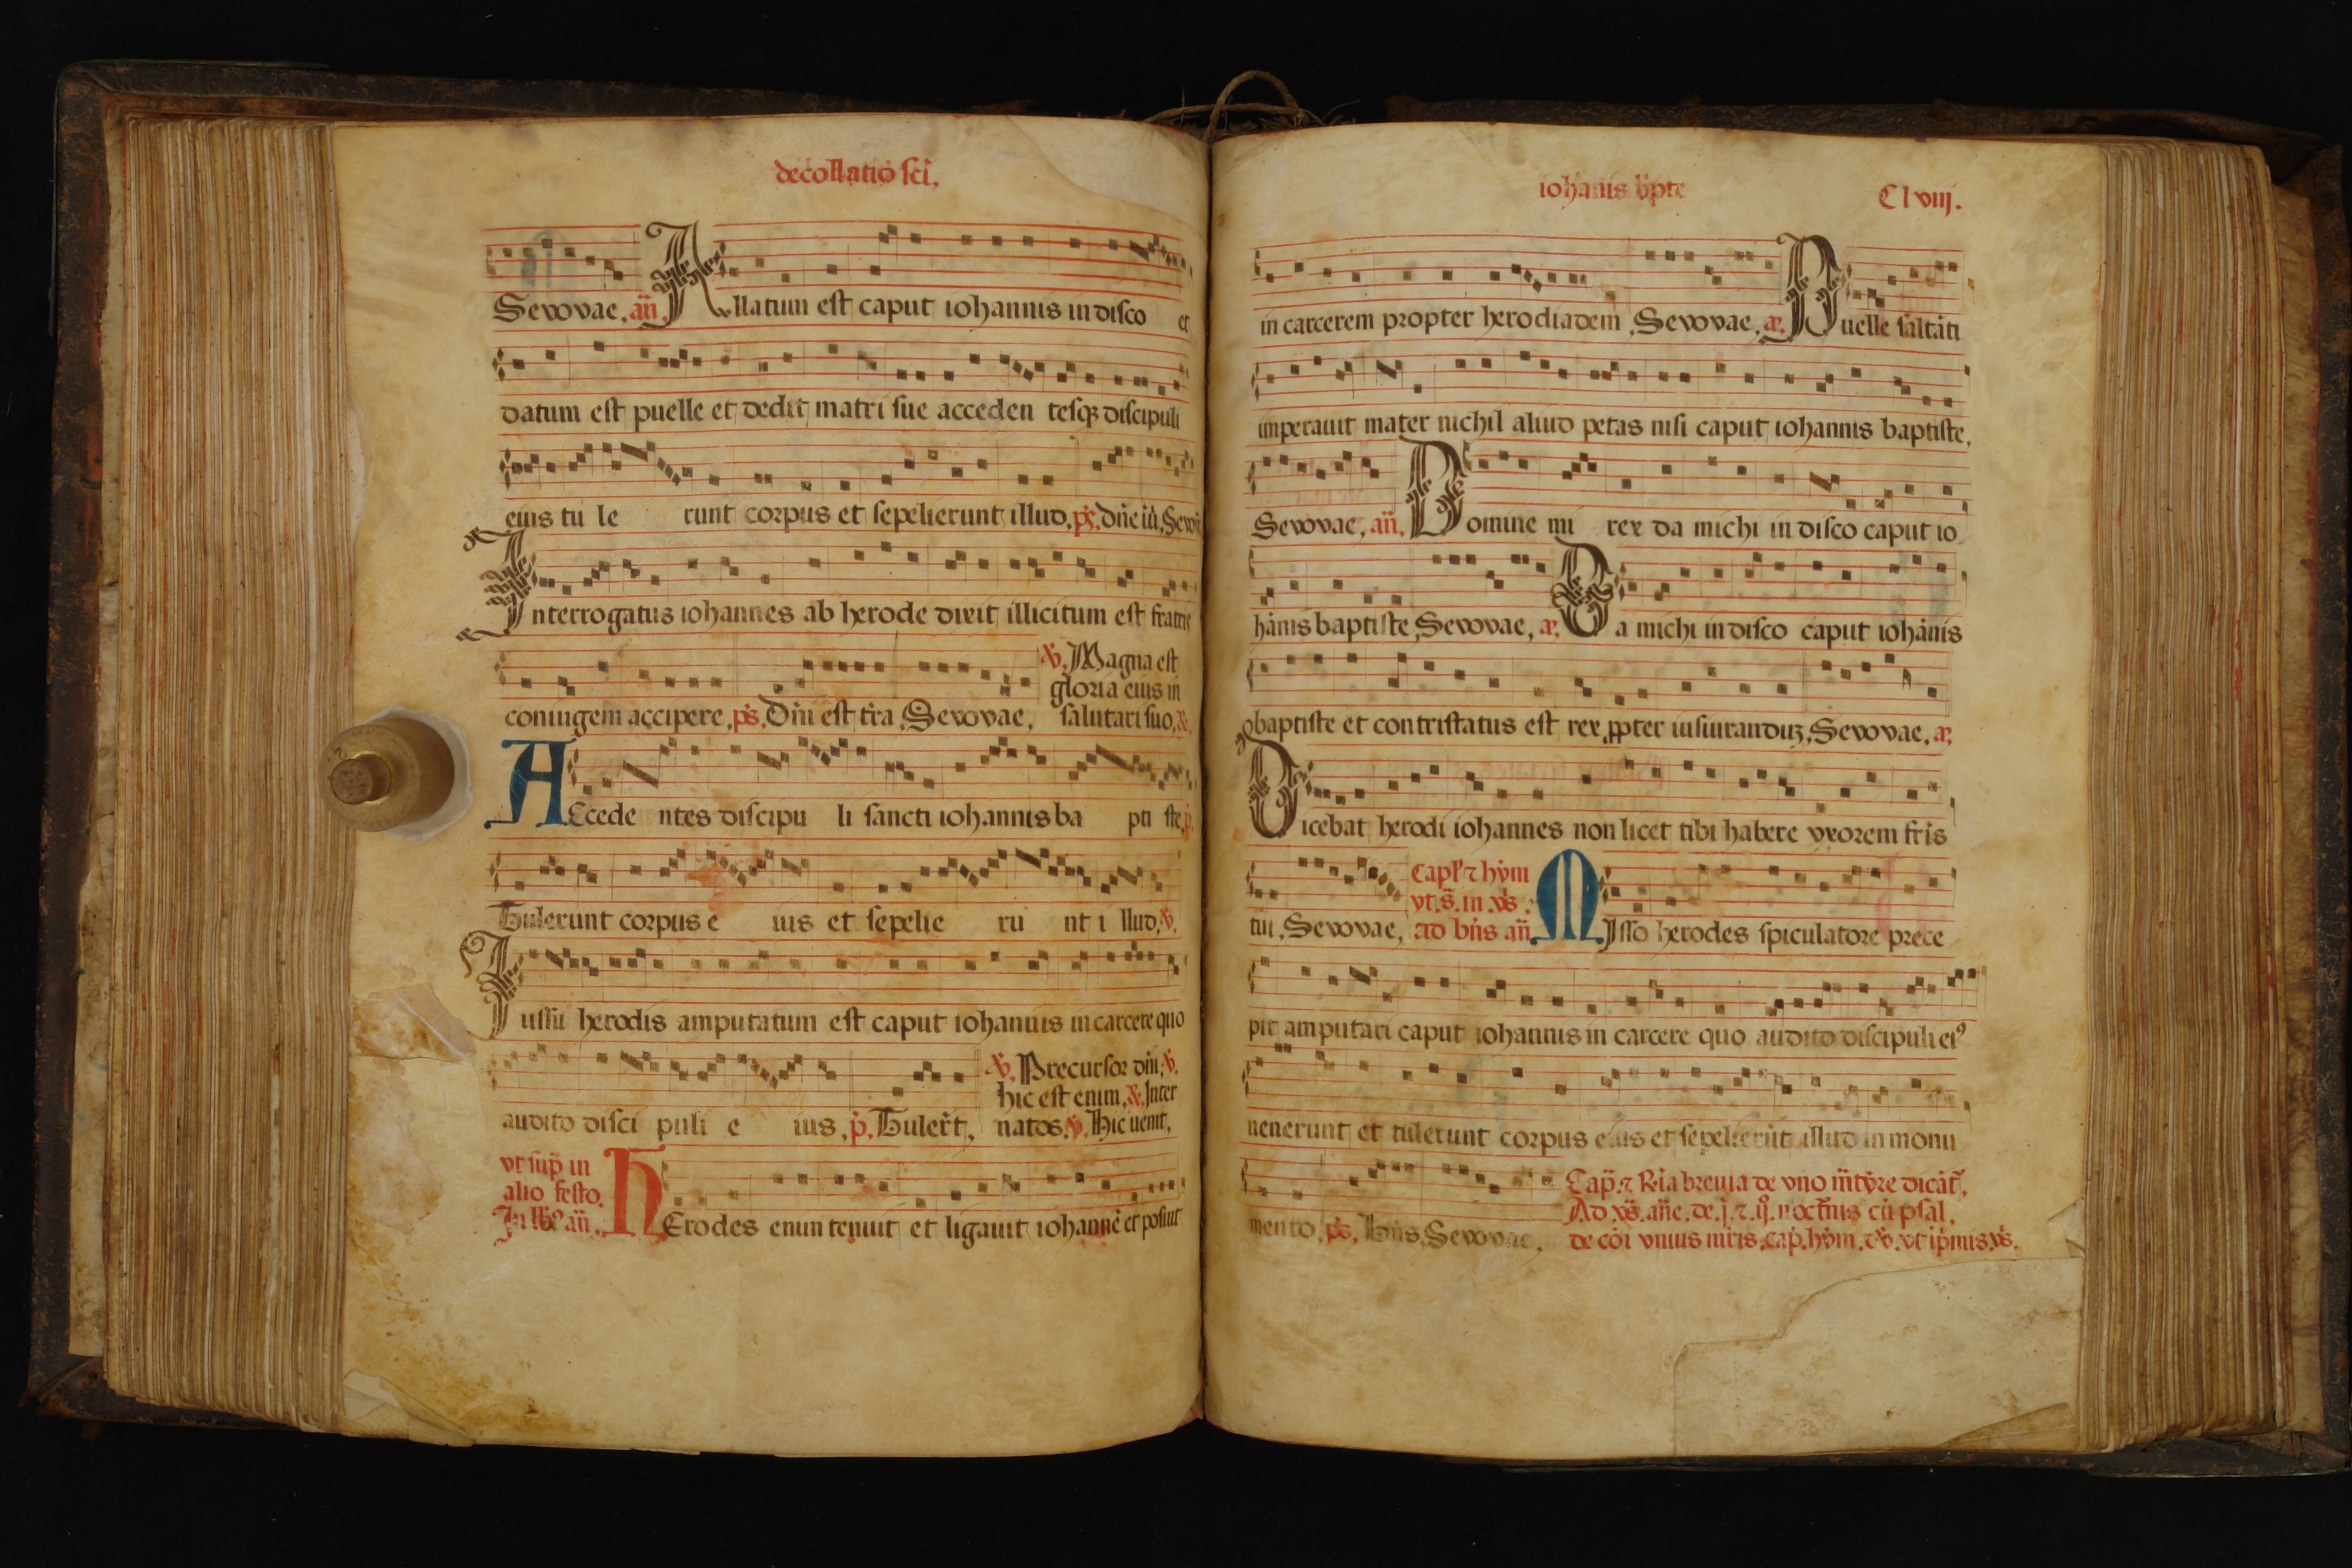 decollatio sci.
Sevovae. añ. Allatum est caput iohannis in disco et
datum est puelle et dedit matri sue acceden tesqꝫ discipuli
eius tu le runt corpus et sepelierunt illud. p̄s. Dñe iũ. Sevov
Interrogatus iohannes ab herode dixit illicitum est fratris
℣. Magna est
gloria eius in
coniugem accipere. p̄s. Dñi est tr̃a. Sevovae. salutari suo. ℟.
ACcede ntes discipu li sancti iohannis ba pti ste. p.
Tulerunt corpus e ius et sepelie ru nt i llud. ℣.
Iussu herodis amputatum est caput iohannis in carcere quo
℣. Precursor dñi. ℣.
hic est enim. ℟. Inter
audito disci puli e ius. p. Tuler̃t. natos. ℣. Hic uenit.
vt sup̃ in
alio festo.
In lb̃ꝰ añ. HErodes enim tenuit et ligauit iohannẽ et posuit
iohãnis bp̃te Clviij.
in carcerem propter herodiadem. Sevovae. a. Puelle saltãti
imperauit mater nichil aliud petas nisi caput iohannis baptiste.
Sevovae. añ. Domine mi rex da michi in disco caput io
hãnis baptiste. Sevovae. a. Da michi in disco caput iohãnis
baptiste et contristatus est rex ꝓpter iusiurandũ. Sevovae. a.
Dicebat herodi iohannes non licet tibi habere vxorem fr̃is
Capl̃ ⁊ hym
vt. s̃. in. v̄s.
tui. Sevovae. ad bñs añ. MIsso herodes spiculatore prece
pit amputari caput iohannis in carcere quo audito discipuli eiꝰ
uenerunt et tulerunt corpus eius et sepelierũt illud in monu
Cap̃. ⁊ Rr̃ia breuia de vno m̃tyre dicãt̃.
Ad. v̄s. añe. de. j. ⁊. ij. noct̃nis cũ psal.
mento. p̄s. Bñs. Sevovae. de cõi vnius mr̃is. cap̃. hỹm. ⁊ ℣. vt ip̃mis. v̄s.